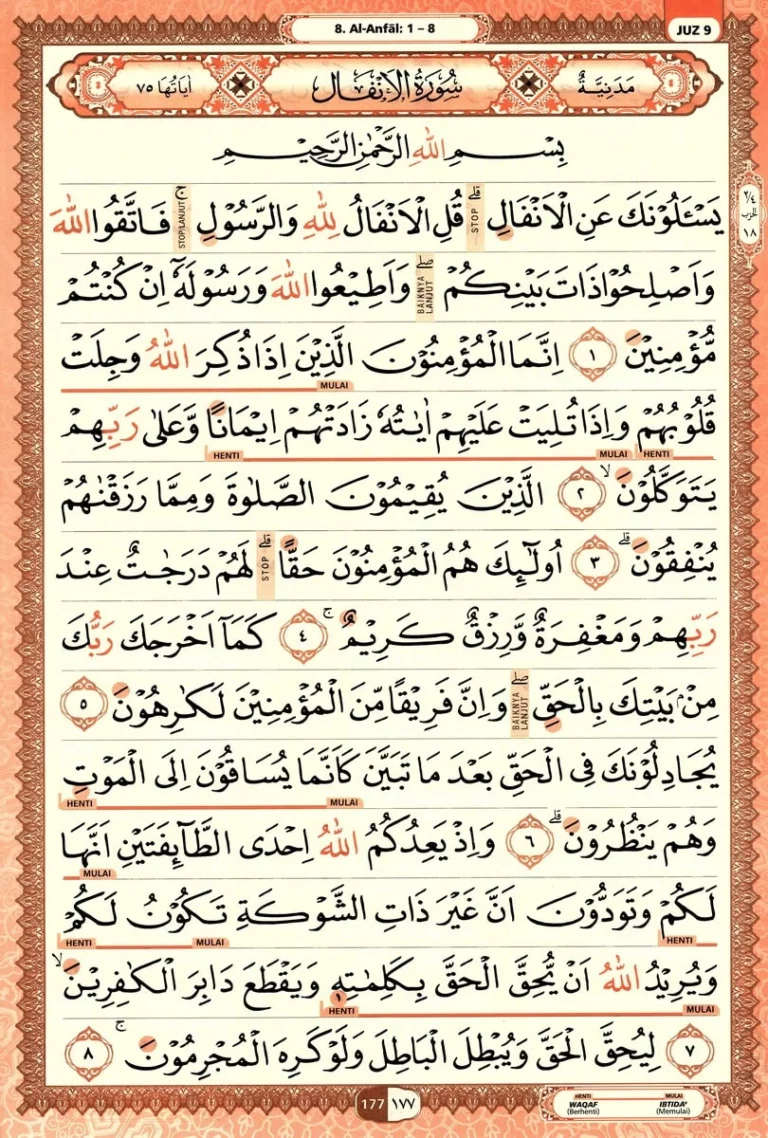 8. Al-Anfāl: 1 – 8
JUZ 9
مَدَنِيَّةٌ سُوْرَةُ الْاَنْفَال اٰيَاتُهَا ٧٥
بِسْمِ اللّٰهِ الرَّحْمٰنِ الرَّحِيْمِ
٢/٤ الحزب ١٨
يَسْـَٔلُوْنَكَ عَنِ الْاَنْفَالِۗ STOP قُلِ الْاَنْفَالُ لِلّٰهِ وَالرَّسُوْلِۚ STOP/LANJUT فَاتَّقُوا اللّٰهَ
وَاَصْلِحُوْا ذَاتَ بَيْنِكُمْۖ BAIKNYA LANJUT وَاَطِيْعُوا اللّٰهَ وَرَسُوْلَهٗٓ اِنْ كُنْتُمْ
مُّؤْمِنِيْنَ ١ اِنَّمَا الْمُؤْمِنُوْنَ الَّذِيْنَ اِذَا ذُكِرَ اللّٰهُ وَجِلَتْ
MULAI
قُلُوْبُهُمْ وَاِذَا تُلِيَتْ عَلَيْهِمْ اٰيٰتُهٗ زَادَتْهُمْ اِيْمَانًا وَّعَلٰى رَبِّهِمْ
HENTI MULAI HENTI
يَتَوَكَّلُوْنَۙ ٢ الَّذِيْنَ يُقِيْمُوْنَ الصَّلٰوةَ وَمِمَّا رَزَقْنٰهُمْ
يُنْفِقُوْنَۗ ٣ اُولٰۤىِٕكَ هُمُ الْمُؤْمِنُوْنَ حَقًّاۗ STOP لَهُمْ دَرَجٰتٌ عِنْدَ
رَبِّهِمْ وَمَغْفِرَةٌ وَّرِزْقٌ كَرِيْمٌۚ ٤ كَمَآ اَخْرَجَكَ رَبُّكَ
مِنْۢ بَيْتِكَ بِالْحَقِّۖ BAIKNYA LANJUT وَاِنَّ فَرِيْقًا مِّنَ الْمُؤْمِنِيْنَ لَكٰرِهُوْنَ ٥
يُجَادِلُوْنَكَ فِى الْحَقِّ بَعْدَ مَا تَبَيَّنَ كَاَنَّمَا يُسَاقُوْنَ اِلَى الْمَوْتِ
HENTI MULAI
وَهُمْ يَنْظُرُوْنَۗ ٦ وَاِذْ يَعِدُكُمُ اللّٰهُ اِحْدَى الطَّاۤىِٕفَتَيْنِ اَنَّهَا
MULAI
لَكُمْ وَتَوَدُّوْنَ اَنَّ غَيْرَ ذَاتِ الشَّوْكَةِ تَكُوْنُ لَكُمْ
HENTI MULAI HENTI
وَيُرِيْدُ اللّٰهُ اَنْ يُّحِقَّ الْحَقَّ بِكَلِمٰتِهٖ وَيَقْطَعَ دَابِرَ الْكٰفِرِيْنَۙ
HENTI MULAI
٧ لِيُحِقَّ الْحَقَّ وَيُبْطِلَ الْبَاطِلَ وَلَوْ كَرِهَ الْمُجْرِمُوْنَۚ ٨
177 ١٧٧
HENTI MULAI
WAQAF (Berhenti) IBTIDA' (Memulai)